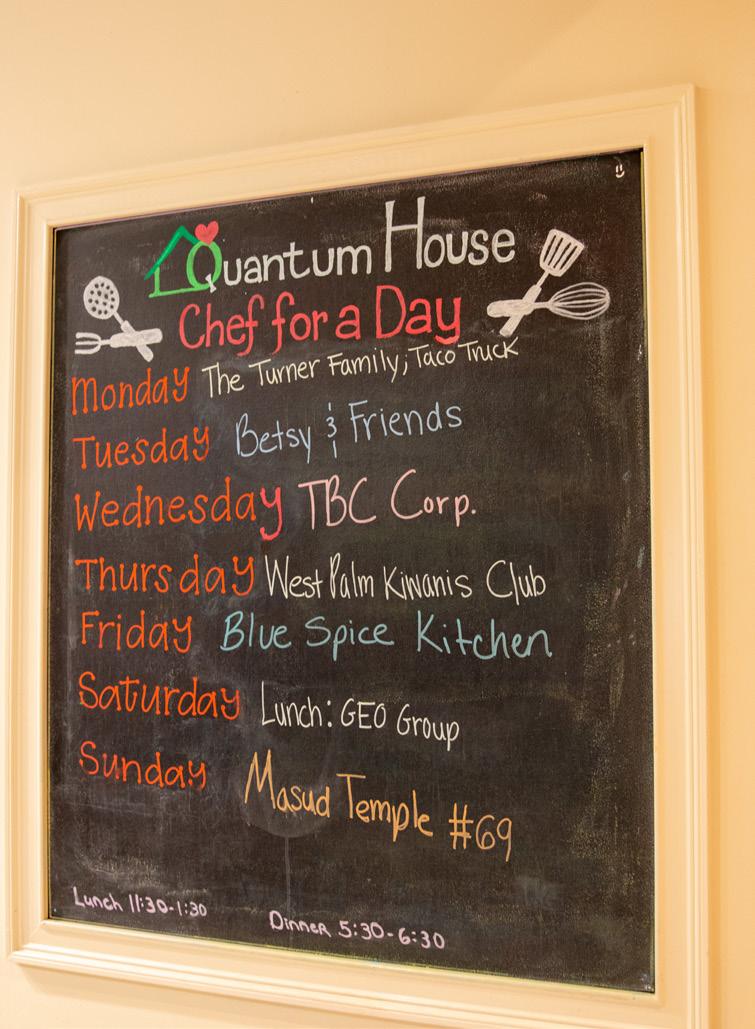 Quantum House
Chef for a Day
Monday The Turner Family; Taco Truck
Tuesday Betsy & Friends
Wednesday TBC Corp.
Thursday West Palm Kiwanis Club
Friday Blue Spice Kitchen
Saturday Lunch: GEO Group
Sunday Masud Temple #69
Lunch 11:30-1:30 Dinner 5:30-6:30